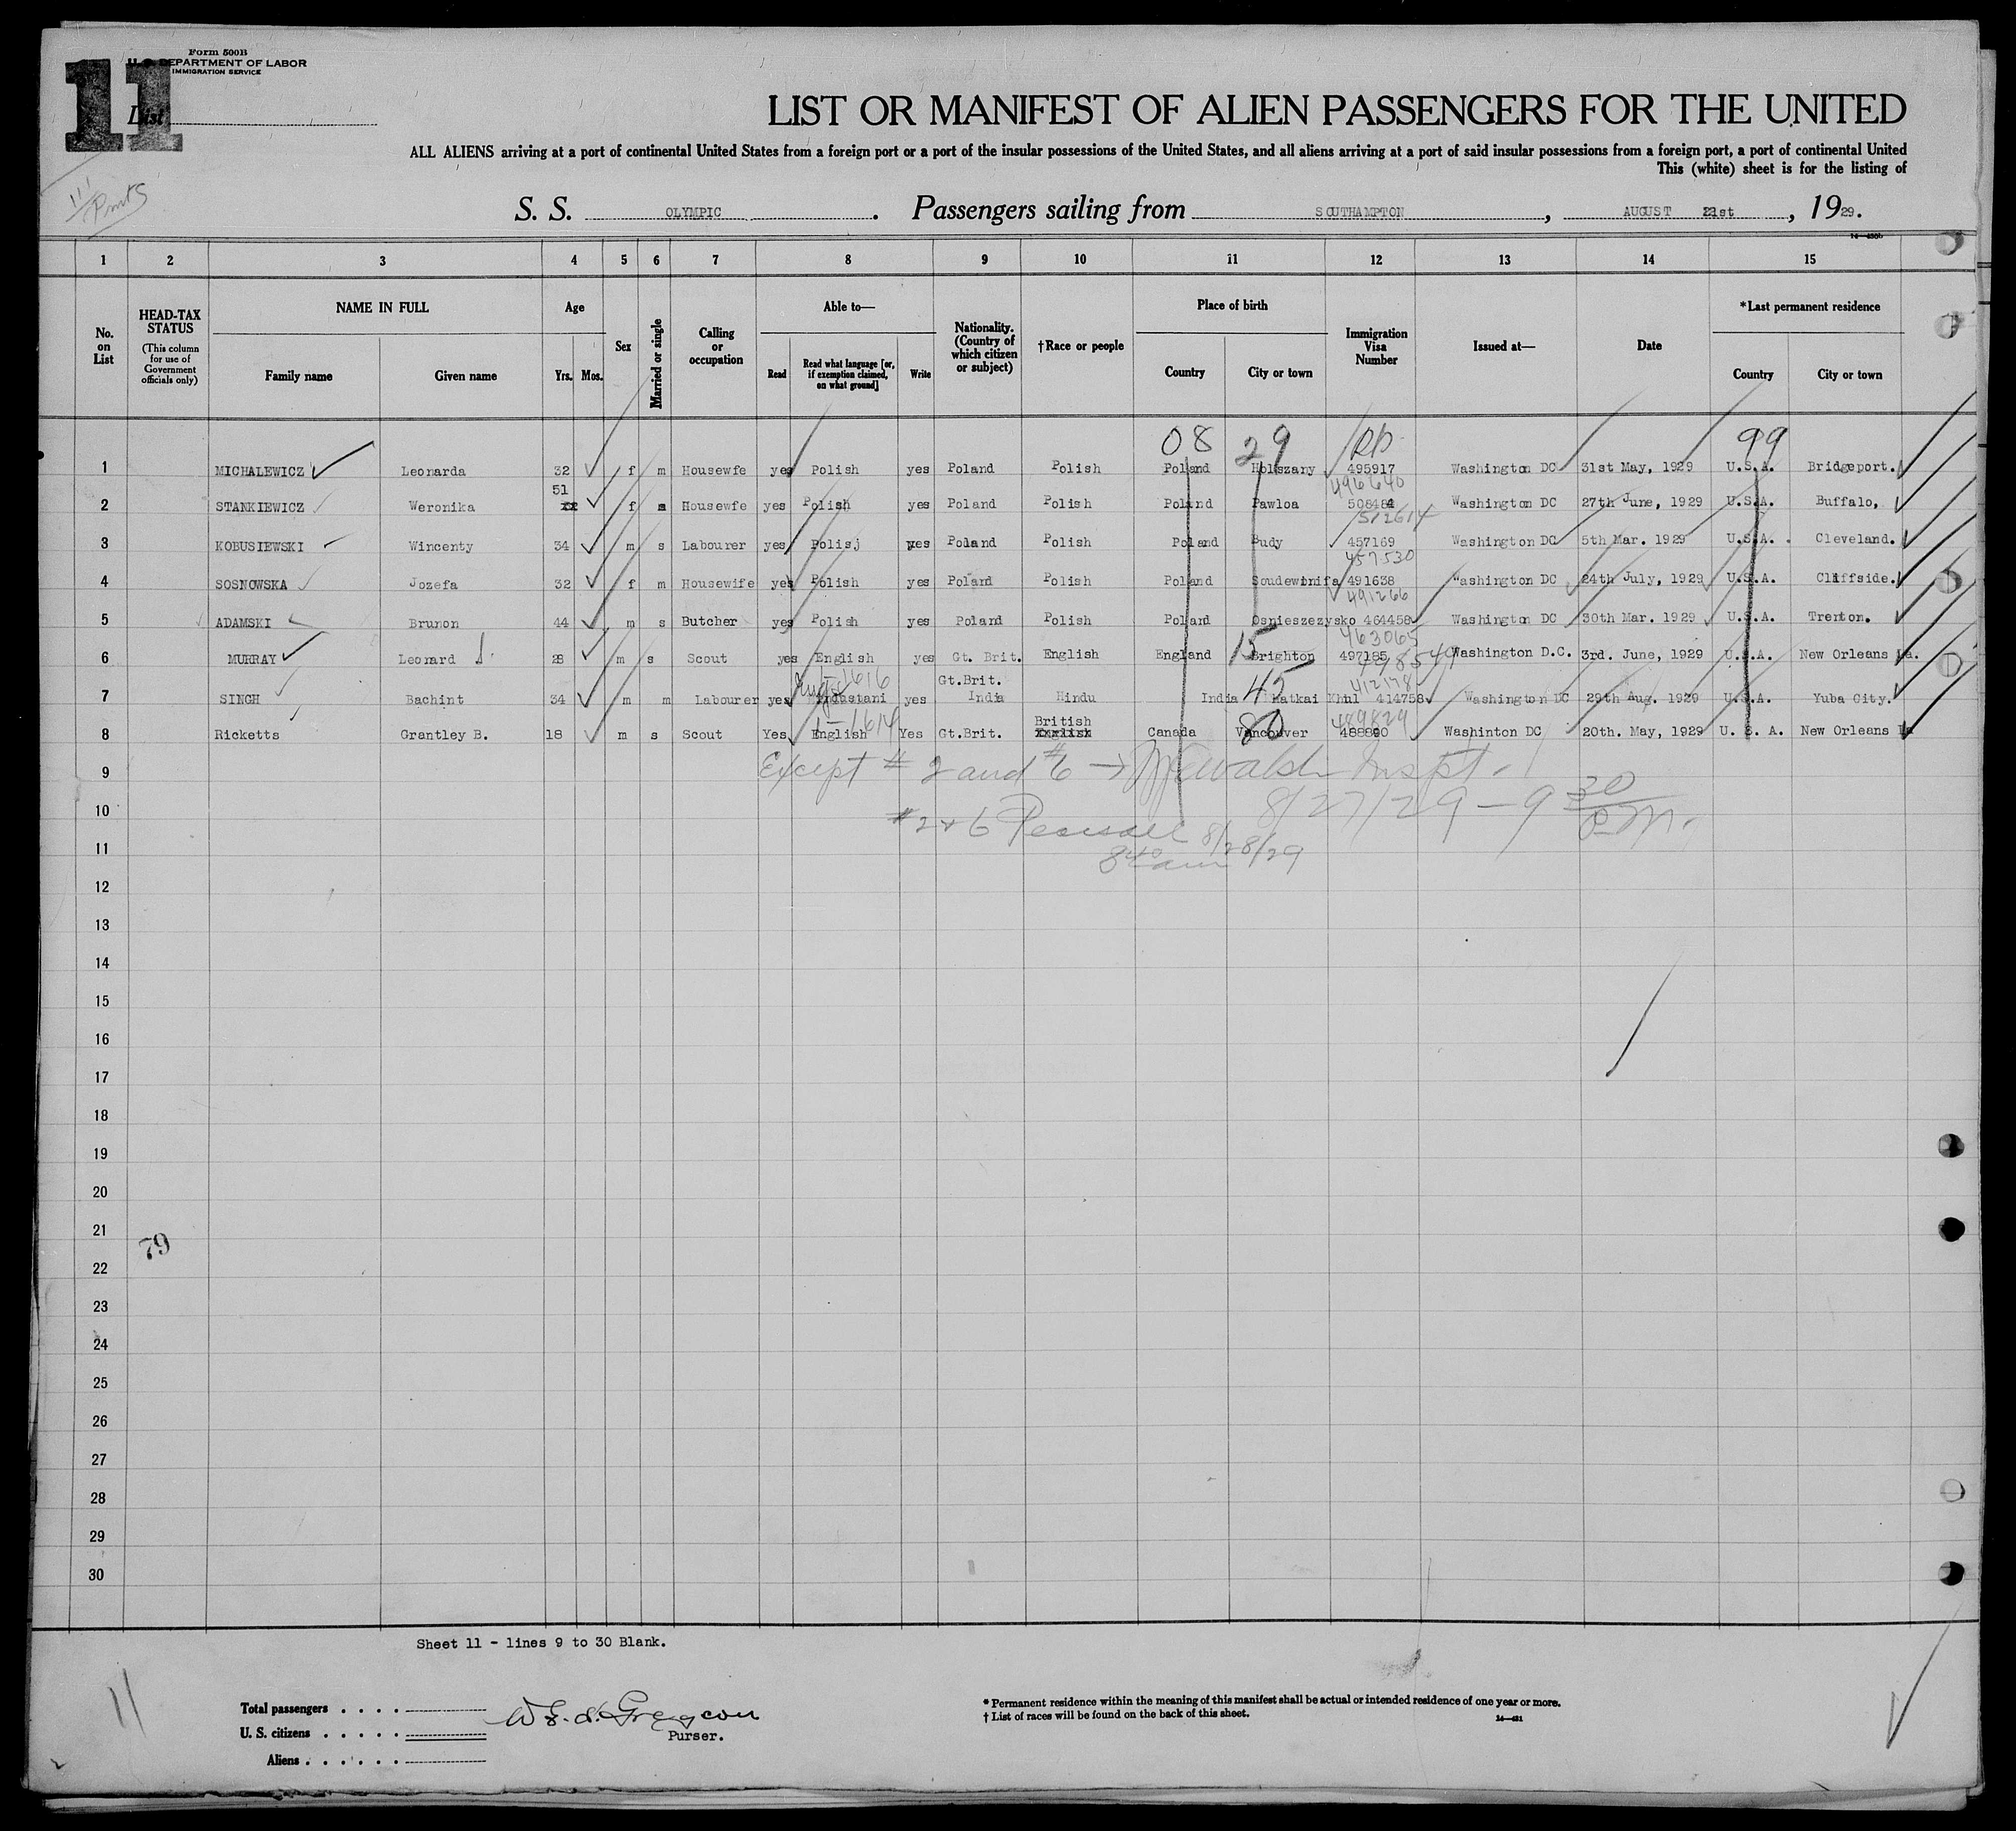 Form 500B
U. S. DEPARTMENT OF LABOR
IMMIGRATION SERVICE
11
List
LIST OR MANIFEST OF ALIEN PASSENGERS FOR THE UNITED
ALL ALIENS arriving at a port of continental United States from a foreign port or a port of the insular possessions of the United States, and all aliens arriving at a port of said insular possessions from a foreign port, a port of continental United
This (white) sheet is for the listing of
S. S. OLYMPIC . Passengers sailing from SOUTHAMPTON , AUGUST 21st , 1929.
1 2 3 4 5 6 7 8 9 10 11 12 13 14 15
No. on List
HEAD-TAX STATUS
(This column for use of Government officials only)
NAME IN FULL
Family name Given name
Age
Yrs. Mos.
Sex
Married or single
Calling or occupation
Able to—
Read Read what language [or, if exemption claimed, on what ground] Write
Nationality. (Country of which citizen or subject)
†Race or people
Place of birth
Country City or town
Immigration Visa Number
Issued at—
Date
*Last permanent residence
Country City or town
08 29 99
1 MICHALEWICZ Leonarda 32 f m Housewfe yes Polish yes Poland Polish Poland Holszany 495917 Washington DC 31st May, 1929 U.S.A. Bridgeport.
51 496640
2 STANKIEWICZ Weronika f Housewfe yes Polish yes Poland Polish Poland Pawloa 508484 Washington DC 27th June, 1929 U.S.A. Buffalo,
512614
3 KOBUSIEWSKI Wincenty 34 m s Labourer yes Polisj yes Poland Polish Poland Budy 457169 Washington DC 5th Mar. 1929 U.S.A. Cleveland.
457530
4 SOSNOWSKA Jozefa 32 f m Housewife yes Polish yes Poland Polish Poland 491638 Washington DC 24th July, 1929 U.S.A. Cliffside.
491266
5 ADAMSKI Brunon 44 m s Butcher yes Polish yes Poland Polish Poland Osnieszezysko 464458 Washington DC 30th Mar. 1929 U.S.A. Trenton.
463065
6 MURRAY Leonard J. 28 m s Scout yes English yes Gt. Brit. English England 15 Brighton 497185 Washington D.C. 3rd. June, 1929 U.S.A. New Orleans La.
Gt.Brit. 412178
7 SINGH Bachint 34 m m Labourer yes Hindustani yes India Hindu India 45 Khatkai Khul 414758 Washington DC 29th Aug. 1929 U.S.A. Yuba City.
British 489829
8 Ricketts Grantley B. 18 m s Scout Yes English Yes Gt.Brit. English Canada 80 Vancouver 488890 Washinton DC 20th. May, 1929 U. S. A. New Orleans La
9 Except # 2 and #6 → Inspt.
10 8/27/29 — 9 30 P.M.
#2 & 6 Pearsall 8/28/29
11 8 40 am
12
13
14
15
16
17
18
19
20
21
79
22
23
24
25
26
27
28
29
30
Sheet 11 - lines 9 to 30 Blank.
11
Total passengers . . . .
U. S. citizens . . . . .
Purser.
Aliens . . . . . .
* Permanent residence within the meaning of this manifest shall be actual or intended residence of one year or more.
† List of races will be found on the back of this sheet.